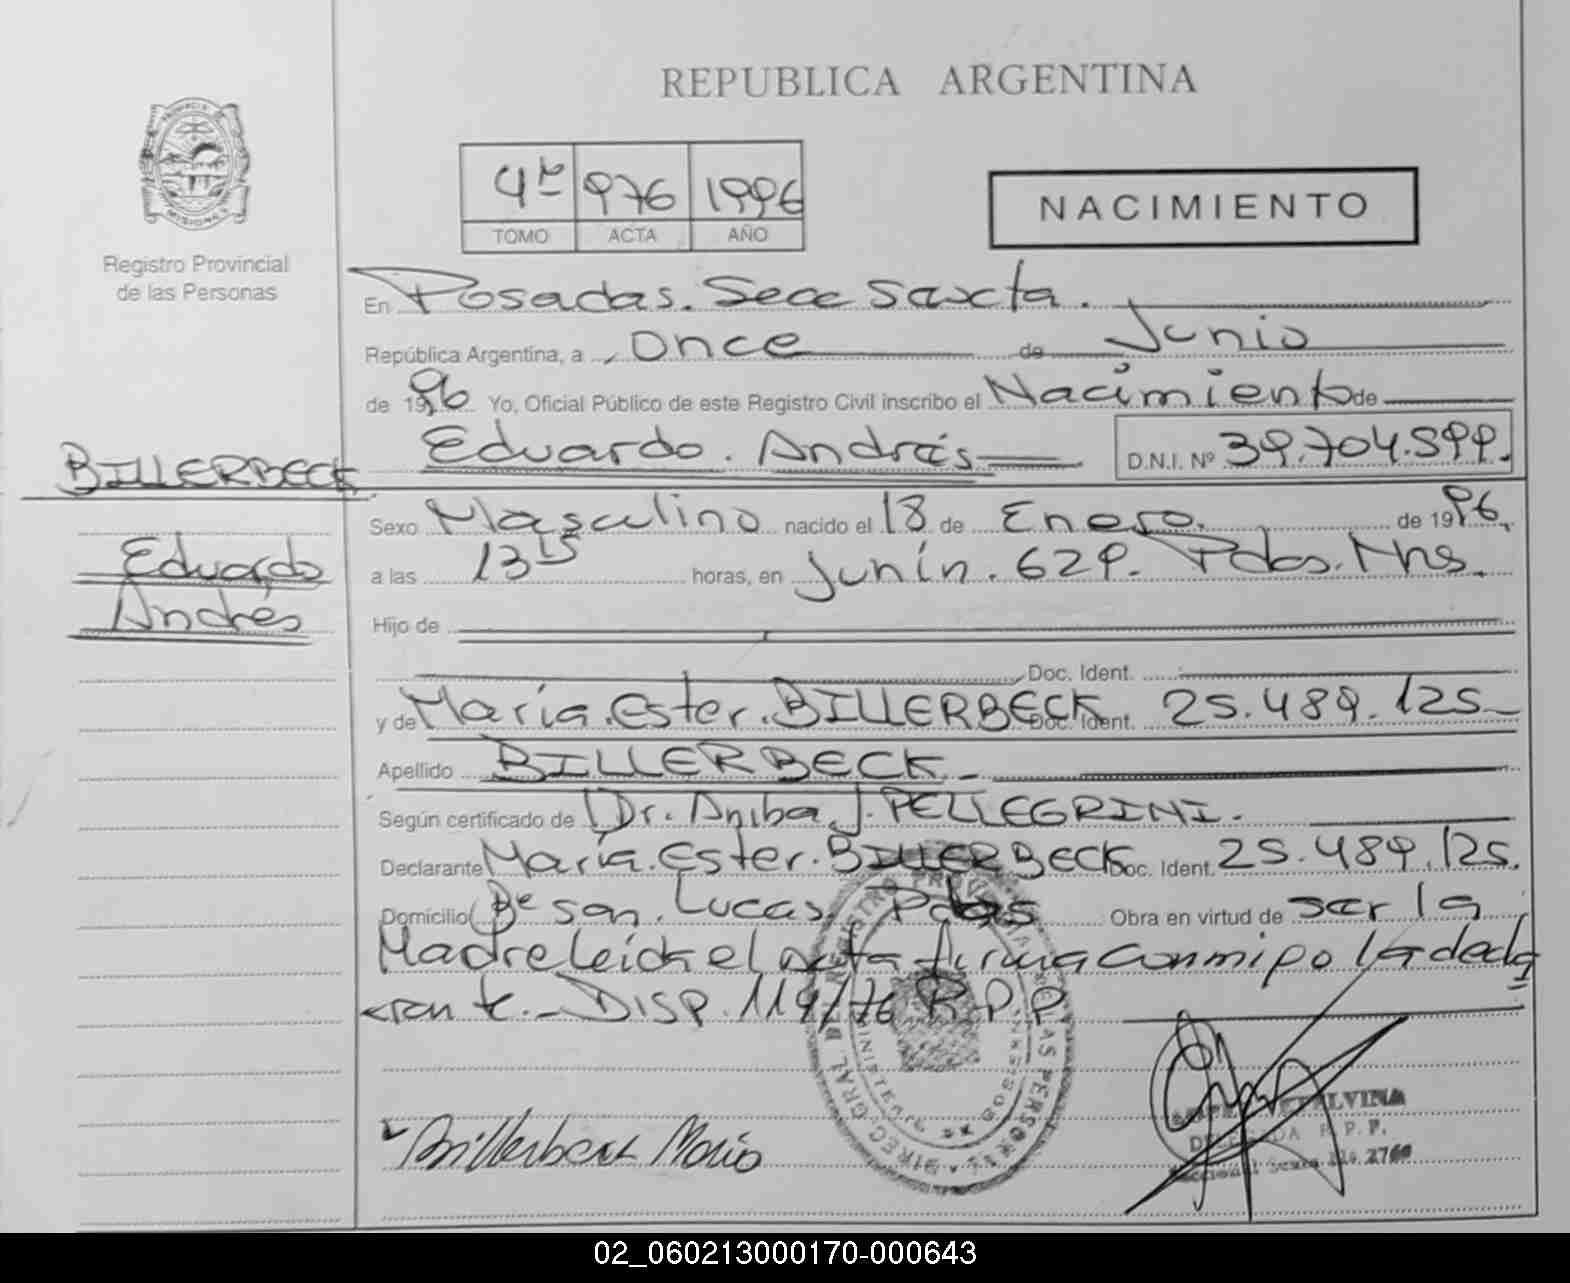 REPUBLICA ARGENTINA
PROVINCIA DE MISIONES
Registro Provincial
de las Personas
4º 976 1996
TOMO ACTA AÑO
NACIMIENTO
En Posadas. Secc Sexta.
República Argentina, a Once de Junio
de 1996 Yo, Oficial Público de este Registro Civil inscribo el Nacimiento de
Eduardo. Andrés D.N.I. Nº 39.704.599.
BILLERBECK
Eduardo
Andrés
Sexo Masculino nacido el 18 de Enero. de 1996.
a las 13 15 horas, en Junín. 629. Pdas. Mns.
Hijo de
Doc. Ident.
y de María. Ester. BILLERBECK Doc. Ident. 25.489.125
Apellido BILLERBECK
Según certificado de Dr. Aniba J. PELLEGRINI.
Declarante María. Ester. BILLERBECK Doc. Ident. 25.489.125.
Domicilio Bº San. Lucas Pdas Obra en virtud de ser la
Madre leída el acta firma conmigo la decla
rante. - DISP. 119/76 R.P.P.
Billerbeck Maria
DELEGADA R.P.P.
Seccional Sexta
02_060213000170-000643